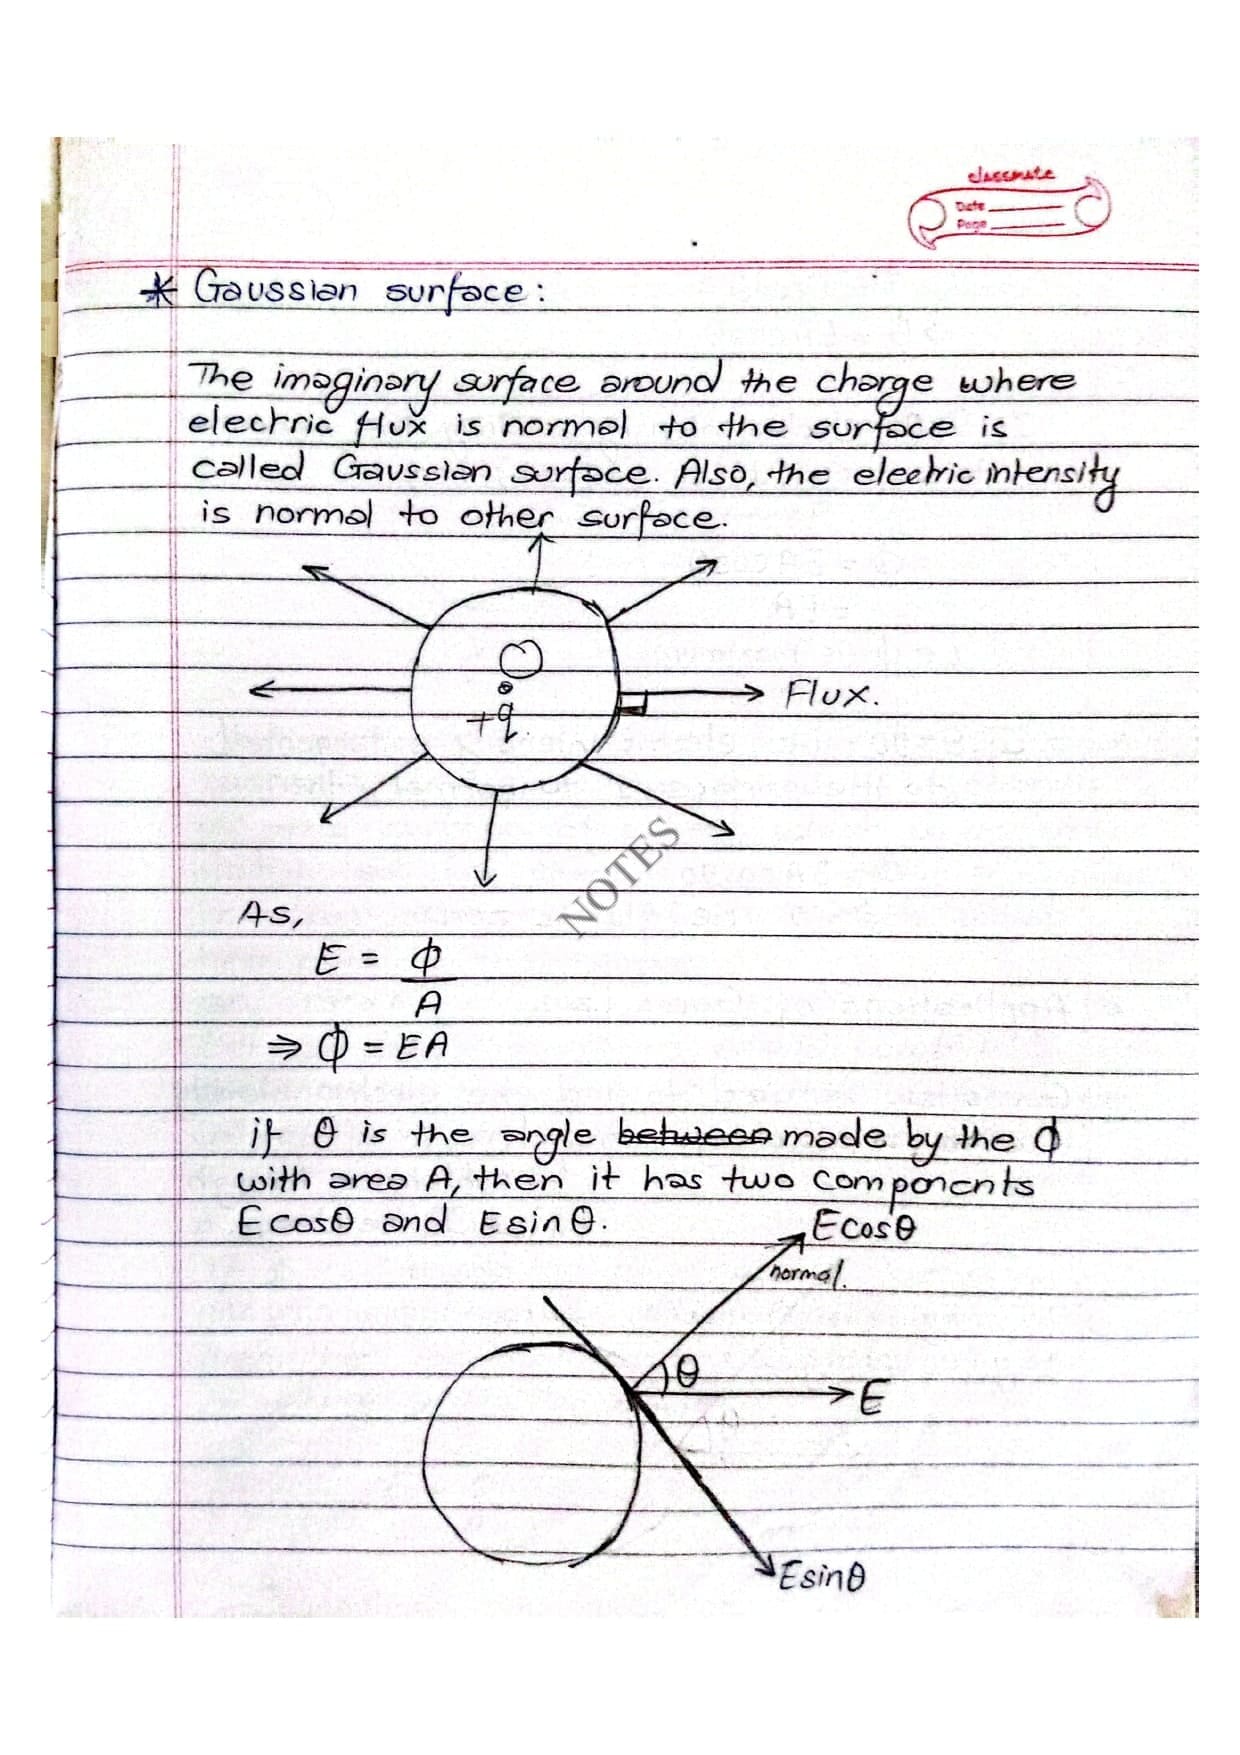 classmate
Date
Page
* Gaussian surface:
The imaginary surface around the charge where
electric flux is normal to the surface is
called Gaussian surface. Also, the electric intensity
is normal to other surface.
Flux.
+q
NOTES
As,
E = Φ
A
⇒ Φ = EA
if θ is the angle between made by the Φ
with area A, then it has two components
E cosθ and E sin θ.
E cosθ
normal.
θ
E
E sinθ